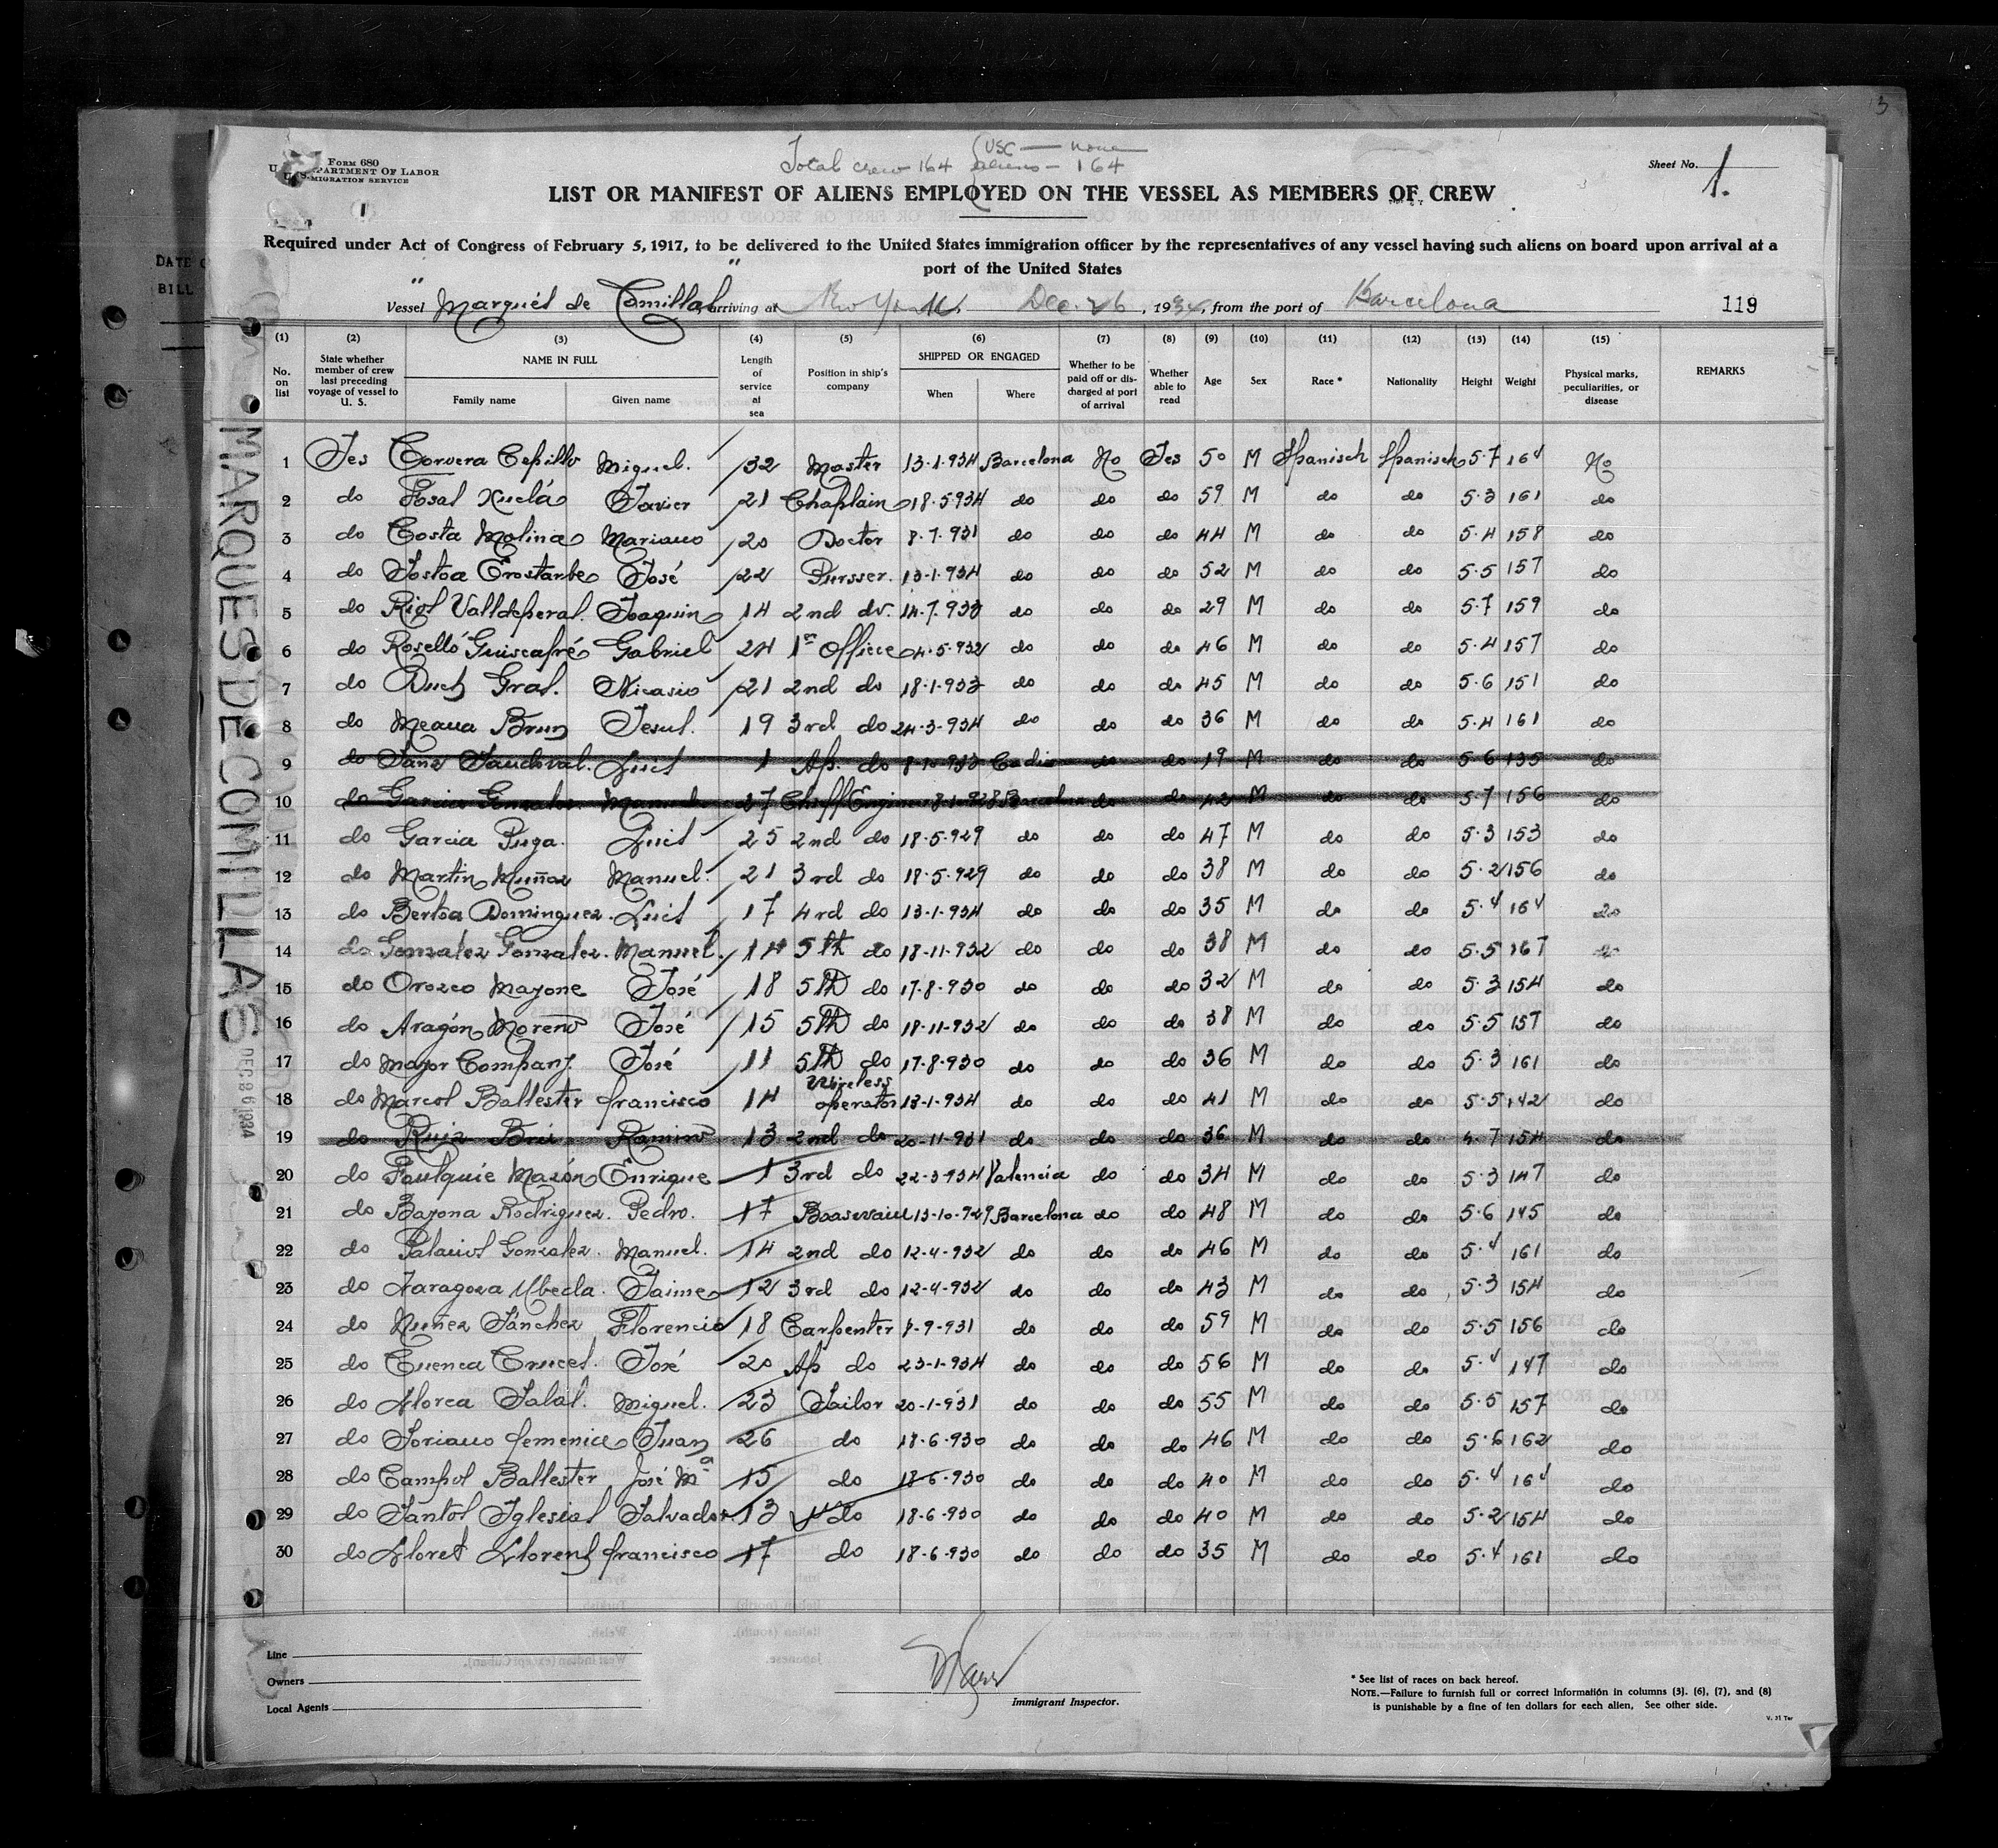 Form 680
U. S. DEPARTMENT OF LABOR
IMMIGRATION SERVICE
1
Total crew 164 USC — none
aliens — 164
Sheet No. 1.
3
LIST OR MANIFEST OF ALIENS EMPLOYED ON THE VESSEL AS MEMBERS OF CREW
Required under Act of Congress of February 5, 1917, to be delivered to the United States immigration officer by the representatives of any vessel having such aliens on board upon arrival at a
port of the United States
DATE
BILL
Vessel "Marqués de Comillas" arriving at New York, Dec. 26, 1934, from the port of Barcelona 119
(1) (2) (3) (4) (5) (6) (7) (8) (9) (10) (11) (12) (13) (14) (15)
No. on list State whether member of crew last preceding voyage of vessel to U. S. NAME IN FULL Family name Given name Length of service at sea Position in ship's company SHIPPED OR ENGAGED When Where Whether to be paid off or discharged at port of arrival Whether able to read Age Sex Race * Nationality Height Weight Physical marks, peculiarities, or disease REMARKS
MARQUES DE COMILLAS
DEC 26 1934
1 Yes Corvera Cepillo Miguel. 32 Master 13-1-934 Barcelona No Yes 50 M Spanisch Spanisch 5·7 164 No
2 do Fosal Xuclá Javier 21 Chaplain 18-5-934 do do do 59 M do do 5·3 161 do
3 do Costa Molina Mariano 20 Doctor 8-7-931 do do do 44 M do do 5·4 158 do
4 do Tostoa Erostarbe José 22 Pursser. 13-1-934 do do do 52 M do do 5·5 157 do
5 do Riol Valldeperal. Joaquin 14 2nd do. 14-7-933 do do do 29 M do do 5·7 159 do
6 do Roselló Guiscafré Gabriel 24 1st Officce 4-5-932 do do do 46 M do do 5·4 157 do
7 do Duch Gral. Nicasio 21 2nd do 18-1-933 do do do 45 M do do 5·6 151 do
8 do Meana Brun Jesul. 19 3rd do 24-3-934 do do do 36 M do do 5·4 161 do
9 do Sanz Sandoval. Luis 1 Ap. do 8-10-933 Cadiz do do 19 M do do 5·6 135 do
10 do Garcia Gonzalez Manuel 27 Chieff Engineer 8-1-928 Barcelona do do 42 M do do 5·7 156 do
11 do Garcia Puga. Luis 25 2nd do 18-5-929 do do do 47 M do do 5·3 153 do
12 do Martin Muñoz Manuel. 21 3rd do 18-5-929 do do do 38 M do do 5·2 156 do
13 do Bertoa Dominguez. Luis 17 4rd do 13-1-934 do do do 35 M do do 5·4 164 do
14 do Gonzalez Gonzalez. Manuel. 14 5th do 18-11-932 do do do 38 M do do 5·5 167 do
15 do Orozco Mayone José 18 5th do 17-8-930 do do do 32 M do do 5·3 154 do
16 do Aragón Moreno José 15 5th do 18-11-932 do do do 38 M do do 5·5 157 do
17 do Mayor Company. José 11 5th do 17-8-930 do do do 36 M do do 5·3 161 do
18 do Marcol Ballester francisco 14 Wireless operator 13-1-934 do do do 41 M do do 5·5 142 do
19 do Ruiz Ramiro 13 2nd do 20-11-931 do do do 36 M do do 5·7 154 do
20 do Foulquie Mazón Enrique 1 3rd do 22-3-934 Valencia do do 34 M do do 5·3 147 do
21 do Bayona Rodriguez. Pedro. 17 13-10-929 Barcelona do do 48 M do do 5·6 145 do
22 do Palaciol Gonzalez. Manuel. 14 2nd do 12-4-932 do do do 46 M do do 5·4 161 do
23 do Zaragoza Ubeda. Jaime 12 3rd do 12-4-932 do do do 43 M do do 5·3 154 do
24 do Nuñez Sánchez Florencio 18 Carpenter 7-9-931 do do do 59 M do do 5·5 156 do
25 do Cuenca Crucel. José 20 Ap do 23-1-934 do do do 56 M do do 5·4 147 do
26 do Llorca Salal. Miguel. 23 Sailor 20-1-931 do do do 55 M do do 5·5 157 do
27 do Soriano femenia Juan 26 do 18-6-930 do do do 46 M do do 5·6 162 do
28 do Campol Ballester José Mª 15 do 18-6-930 do do do 40 M do do 5·4 164 do
29 do Santol Iglesial Salvador. 13 do 18-6-930 do do do 40 M do do 5·2 154 do
30 do Lloret Llorenz francisco 17 do 18-6-930 do do do 35 M do do 5·4 161 do
Line
Owners
Local Agents
Immigrant Inspector.
* See list of races on back hereof.
NOTE.—Failure to furnish full or correct information in columns (3), (6), (7), and (8)
is punishable by a fine of ten dollars for each alien. See other side.